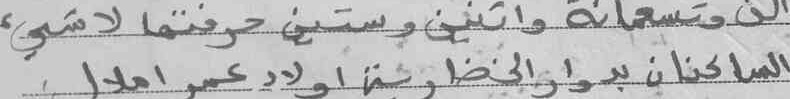 الف وتسعمائة واثنين وستين حرفتها لا شيء
الساكنان بدوار الخضارشة اولاد عمر املال